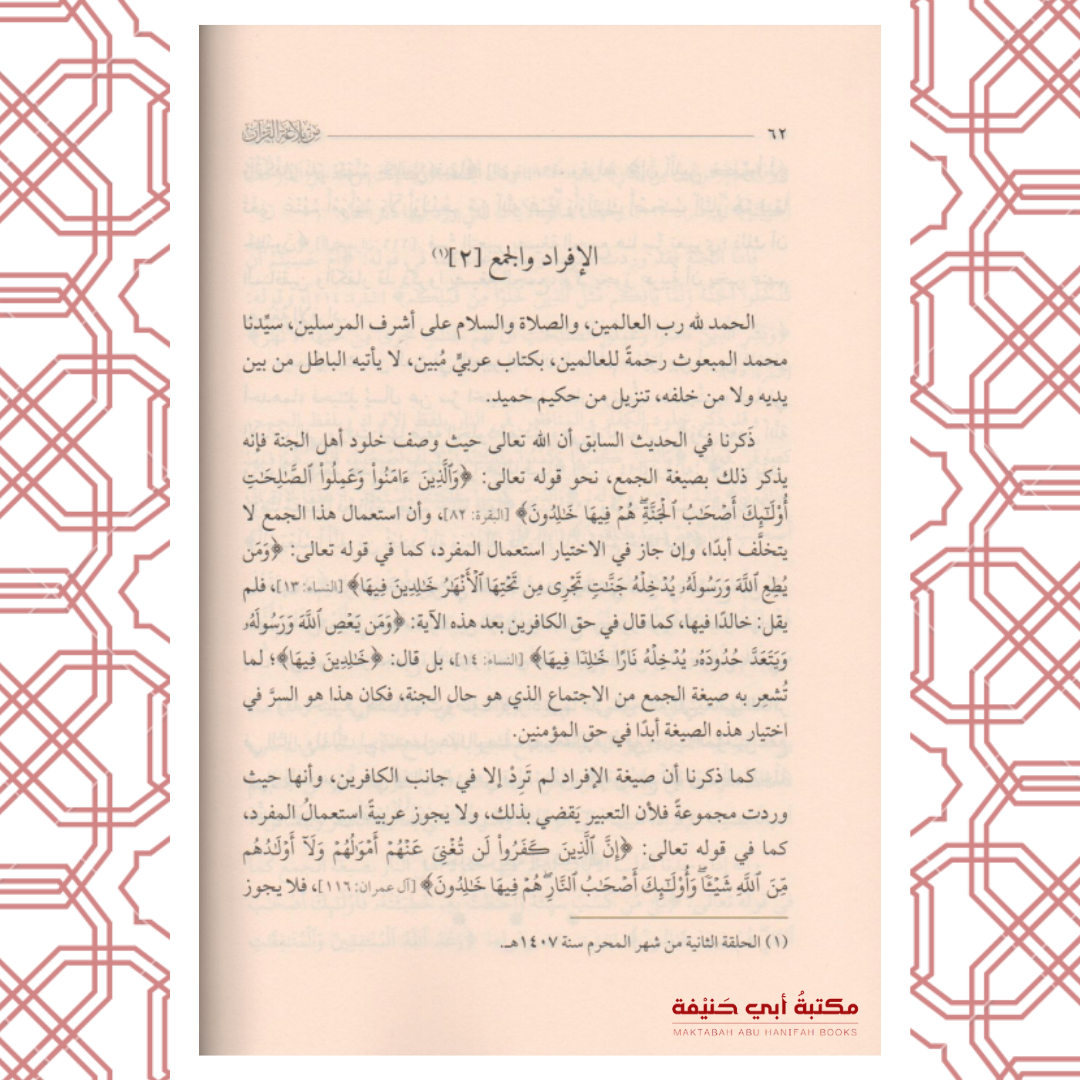 ٦٢ من بلاغة القرآن
الإفراد والجمع [٢](١)
الحمد لله رب العالمين، والصلاة والسلام على أشرف المرسلين، سيِّدنا
محمد المبعوث رحمةً للعالمين، بكتاب عربيٍّ مُبين، لا يأتيه الباطل من بين
يديه ولا من خلفه، تنزيل من حكيم حميد.
ذَكرنا في الحديث السابق أن الله تعالى حيث وصف خلود أهل الجنة فإنه
يذكر ذلك بصيغة الجمع، نحو قوله تعالى: ﴿وَٱلَّذِينَ ءَامَنُواْ وَعَمِلُواْ ٱلصَّٰلِحَٰتِ
أُوْلَٰٓئِكَ أَصْحَٰبُ ٱلْجَنَّةِۖ هُمْ فِيهَا خَٰلِدُونَ﴾ [البقرة: ٨٢]، وأن استعمال هذا الجمع لا
يتخلَّف أبدًا، وإن جاز في الاختيار استعمال المفرد، كما في قوله تعالى: ﴿وَمَن
يُطِعِ ٱللَّهَ وَرَسُولَهُۥ يُدْخِلْهُ جَنَّٰتٍ تَجْرِى مِن تَحْتِهَا ٱلْأَنْهَٰرُ خَٰلِدِينَ فِيهَا﴾ [النساء: ١٣]، فلم
يقل: خالدًا فيها، كما قال في حق الكافرين بعد هذه الآية: ﴿وَمَن يَعْصِ ٱللَّهَ وَرَسُولَهُۥ
وَيَتَعَدَّ حُدُودَهُۥ يُدْخِلْهُ نَارًا خَٰلِدًا فِيهَا﴾ [النساء: ١٤]، بل قال: ﴿خَٰلِدِينَ فِيهَا﴾؛ لما
تُشعر به صيغة الجمع من الاجتماع الذي هو حال الجنة، فكان هذا هو السرَّ في
اختيار هذه الصيغة أبدًا في حق المؤمنين.
كما ذكرنا أن صيغة الإفراد لم تَرِدْ إلا في جانب الكافرين، وأنها حيث
وردت مجموعةً فلأن التعبير يَقضي بذلك، ولا يجوز عربيةً استعمالُ المفرد،
كما في قوله تعالى: ﴿إِنَّ ٱلَّذِينَ كَفَرُواْ لَن تُغْنِىَ عَنْهُمْ أَمْوَٰلُهُمْ وَلَآ أَوْلَٰدُهُم
مِّنَ ٱللَّهِ شَيْـًٔاۖ وَأُوْلَٰٓئِكَ أَصْحَٰبُ ٱلنَّارِۖ هُمْ فِيهَا خَٰلِدُونَ﴾ [آل عمران: ١١٦]، فلا يجوز
(١) الحلقة الثانية من شهر المحرم سنة ١٤٠٧هـ.
مكتبةُ أبي حَنيْفة
MAKTABAH ABU HANIFAH BOOKS